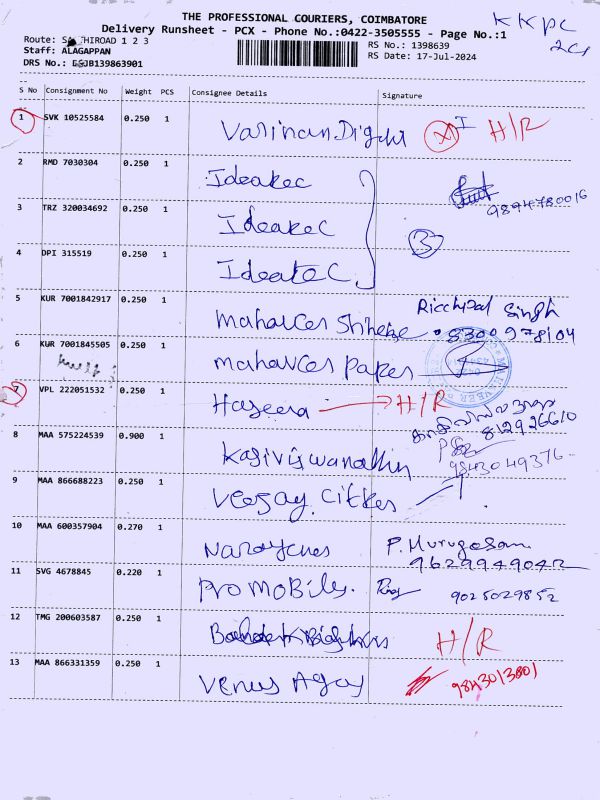 THE PROFESSIONAL COURIERS, COIMBATORE
Delivery Runsheet - PCX - Phone No.:0422-3505555 - Page No.:1
KKPC
Route: HIROAD 1 2 3
RS No.: 1398639
Staff: ALAGAPPAN
RS Date: 17-Jul-2024
DRS No.: 139863901
S No Consignment No Weight PCS Consignee Details Signature
1 SVK 10525584 0.250 1 H/R
2 RMD 7030304 0.250 1 Ideakec
9894780016
3 TRZ 320034692 0.250 1 Ideakec
3
4 DPI 315519 0.250 1 Ideatec
5 KUR 7001842917 0.250 1 Singh
6 KUR 7001845505 0.250 1
7 VPL 222051532 0.250 1 Haseena H/R
8 MAA 575224539 0.900 1 Kasiviswanathin
9843049376
9 MAA 866688223 0.250 1
10 MAA 600357904 0.270 1 P. Murugesan
9629949042
11 SVG 4678845 0.220 1 Pro Mobiles. 9025029852
12 TMG 200603587 0.250 1 H/R
13 MAA 866331359 0.250 1 Venus Agoy 9843013801